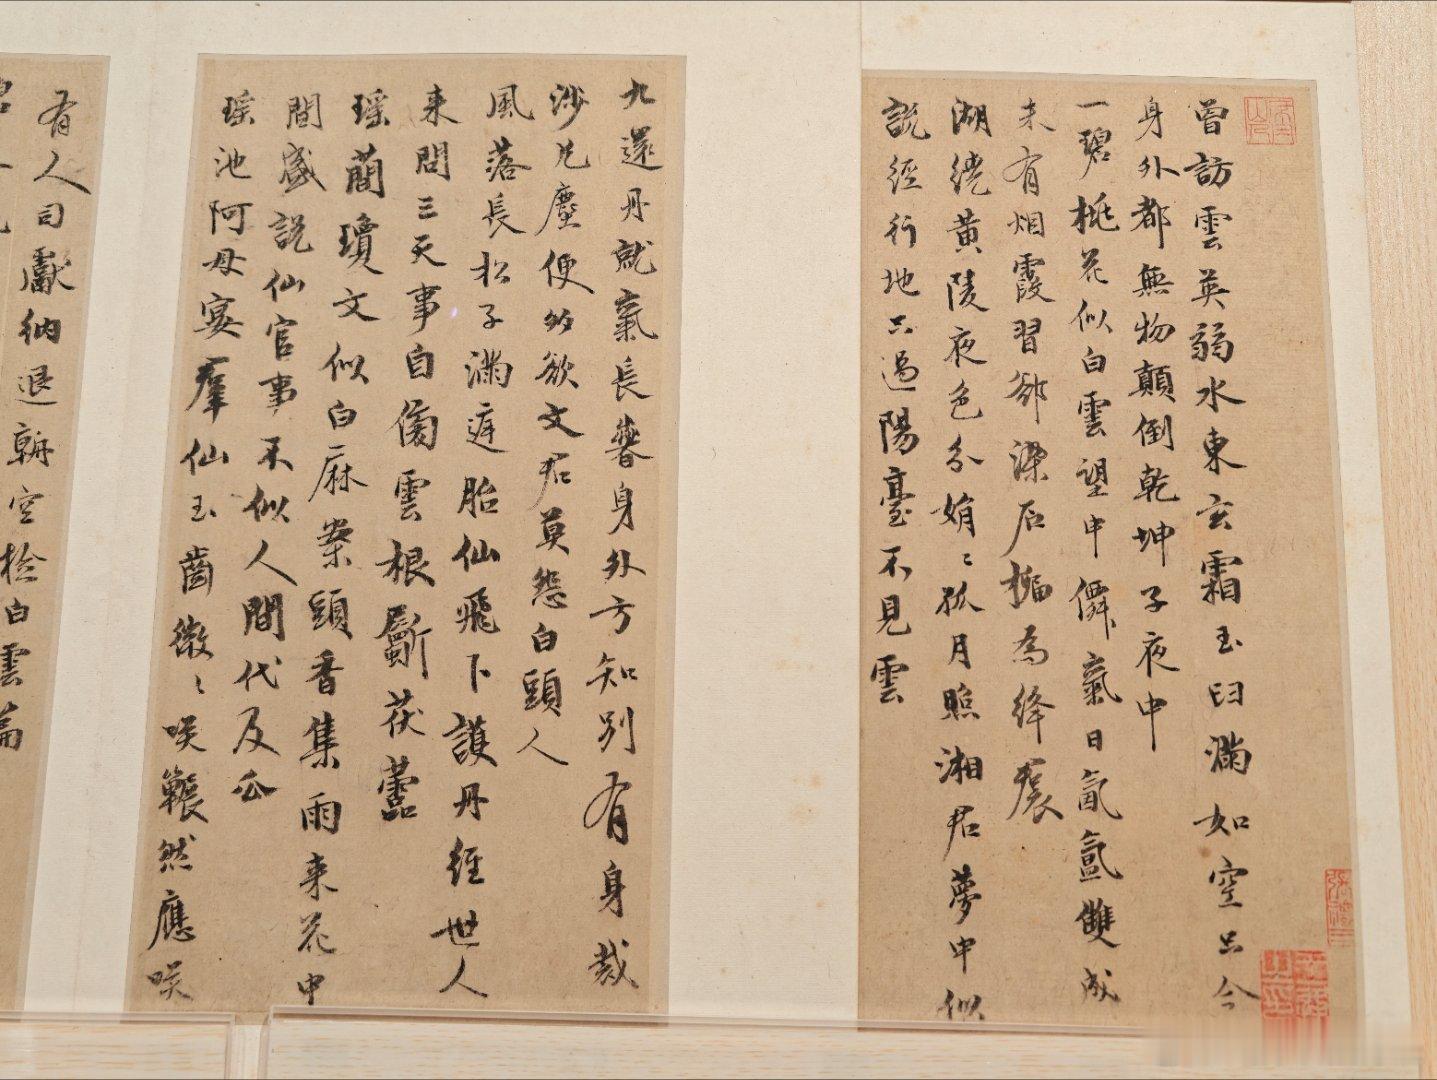 曾訪雲英弱水東玄霜玉臼滿如空只今
身外都無物顛倒乾坤子夜中
一碧桃花似白雲望中僊氣日氤氳雙成
未有烟霞習卻染石榴為絳裠
湖繞黃陵夜色分娟〻孤月照湘君夢中似
說經行地只過陽臺不見雲
九還丹就氣長春身外方知別有身裁
沙兀塵便欲文君莫怨白頭人
風落長松子滿庭胎仙飛下護丹經世人
来問三天事自傍雲根斸茯蕶
瑶蕳瓊文似白麻案頭香集雨来花中
間盛說仙官事不似人間代及瓜
瑶池阿母宴羣仙玉齒微〻咲囅然應咲
有人司獻納退朝空檢白雲篇